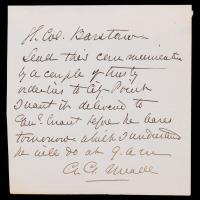 Lt. Col. Barstow.
Send this communication
by a couple of trusty
orderlies to City Point
I want it delivered to
Genl. Grant before he leaves
tomorrow which I understand
he will do at 9. a m
G. G. Meade